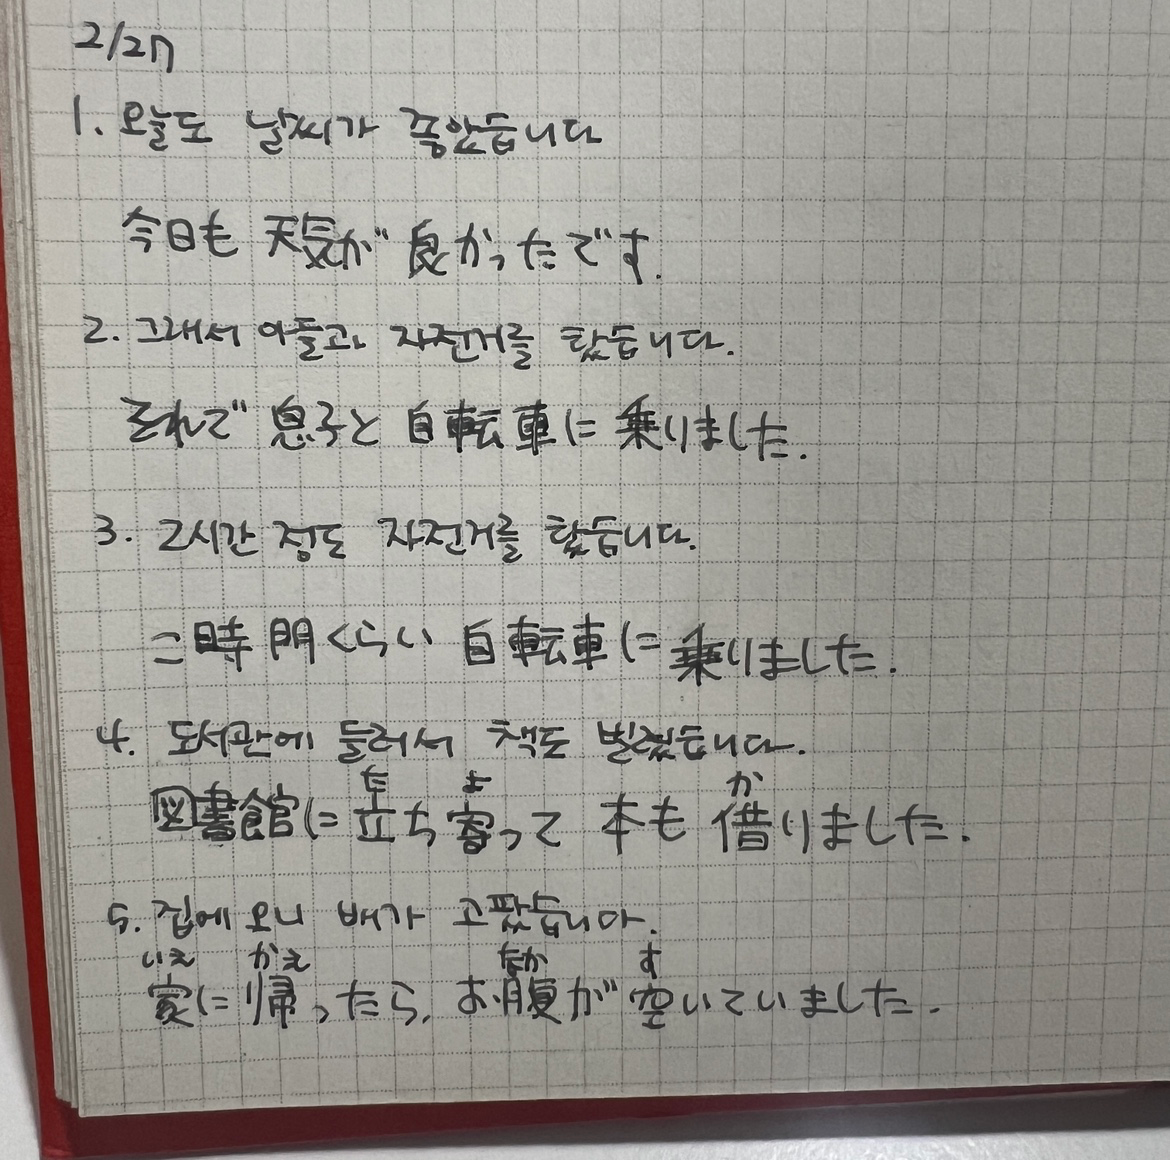 2/27
1. 오늘도 날씨가 좋았습니다
今日も 天気が 良かったです.
2. 그래서 아들과 자전거를 탔습니다.
それで 息子と 自転車に 乗りました.
3. 2시간 정도 자전거를 탔습니다.
二時間くらい 自転車に 乗りました.
4. 도서관에 들러서 책도 빌렸습니다.
た よ か
図書館に 立ち寄って 本も 借りました.
5. 집에 오니 배가 고팠습니다.
いえ かえ なか す
家に 帰ったら, お腹が 空いていました.